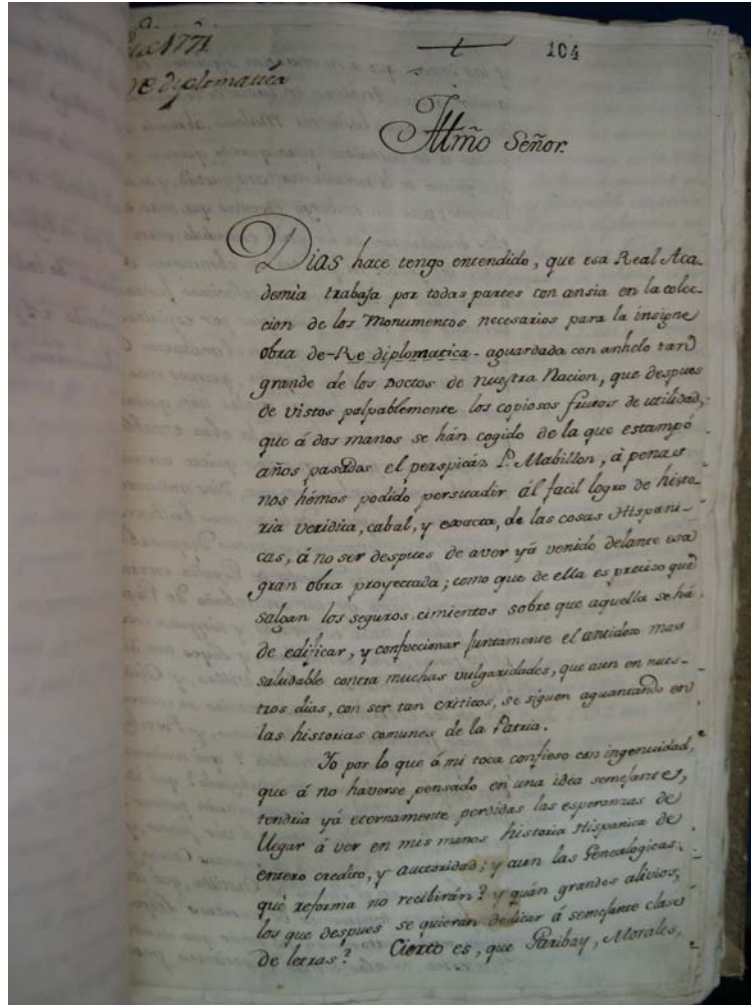 1771
Re diplomatica
104
Illmõ Señor.
Dias hace tengo entendido, que esa Real Aca-
demia trabaja por todas partes con ansia en la colec-
cion de los Monumentos necesarios para la insigne
obra de-Re diplomatica- aguardada con anhelo tan
grande de los Doctos de nuestra Nacion, que despues
de vistos palpablemente los copiosos frutos de utilidad,
que á dos manos se hán cogido de la que estampó
años pasados el perspicáz P. Mabillon, á penas
nos hémos podido persuadir ál facil logro de histo-
ria veridica, cabal, y exacta, de las cosas Hispani-
cas, á no ser despues de aver yá venido delante esa
gran obra proyectada; como que de ella es preciso que
salgan los seguros cimientos sobre que aquella se há
de edificar, y confeccionar juntamente el antidoto mas
saludable contra muchas vulgaridades, que aun en nues-
tros dias, con ser tan criticos, se siguen aguantando en
las historias comunes de la Patria.
Yo por lo que á mi toca confieso con ingenuidad,
que á no haverse pensado en una idea semejante,
tendria yá eternamente perdidas las esperanzas de
llegar á ver en mis manos historia Hispanica de
entero credito, y auctoridad; y aun las Genealogicas
què reforma no recibirán? y quán grandes alivios,
los que despues se quieran dedicar á semejante clase
de letras? Cierto es, que Garibay, Morales,